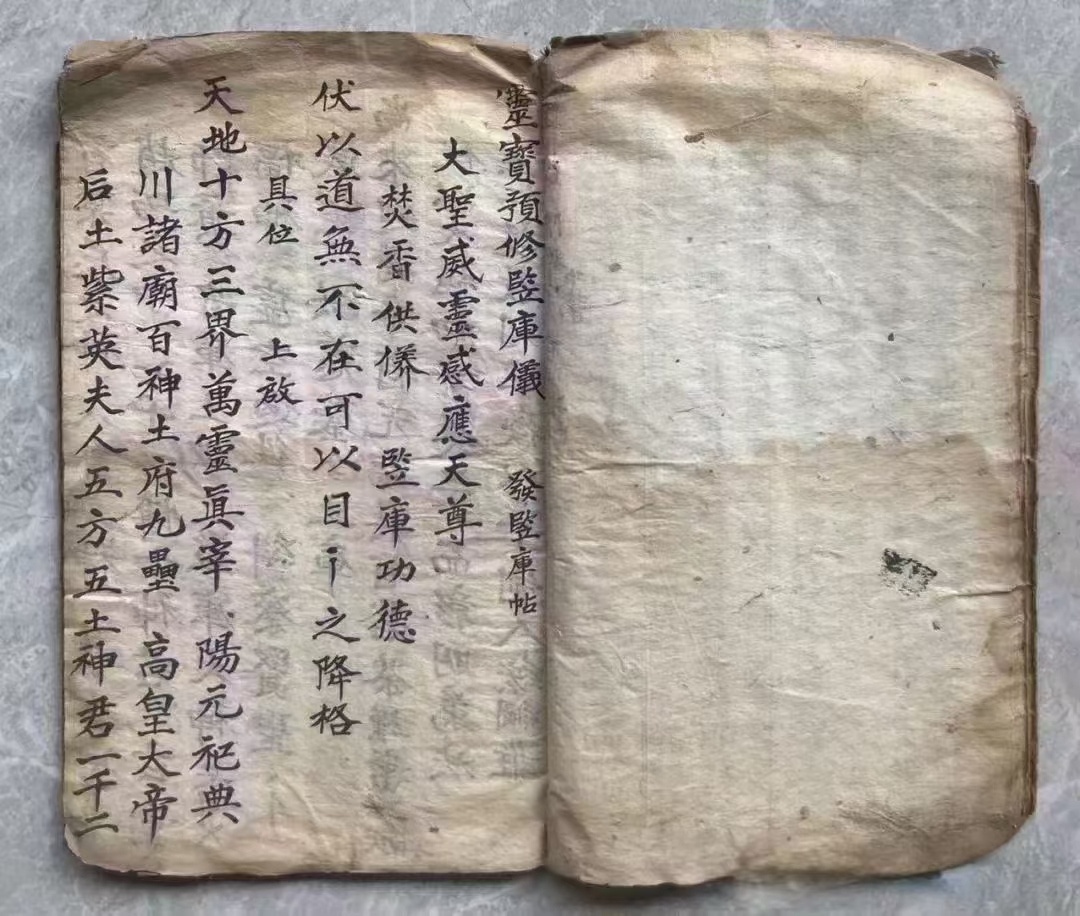 靈寶預修監庫儀 發監庫帖
大聖威靈感應天尊
焚香供養 監庫功德
伏以道無不在可以目亍之降格
具位 上啟
天地十方三界萬靈眞宰陽元祀典
川諸廟百神土府九壘 高皇大帝
后土紫英夫人五方五土神君一千二